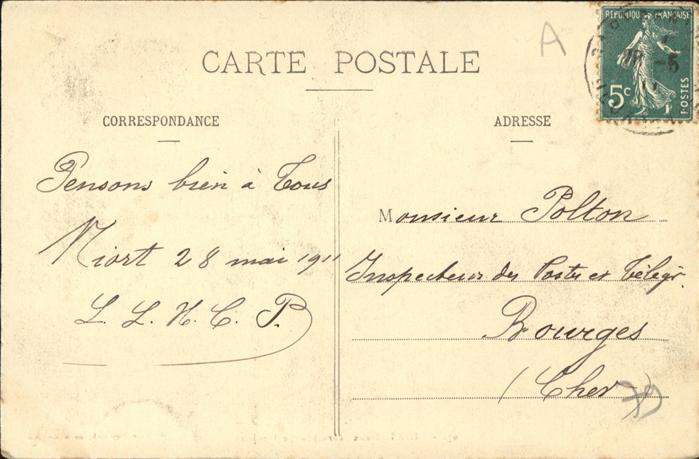 A
RÉPUBLIQUE FRANÇAISE
5c
POSTES
CARTE POSTALE
CORRESPONDANCE
ADRESSE
Pensons bien à Tous
Niort 28 mai 1911
L. L. H. C. P.
Monsieur Polton
Inspecteur des Postes et Télégr.
Bourges
(Cher)
79